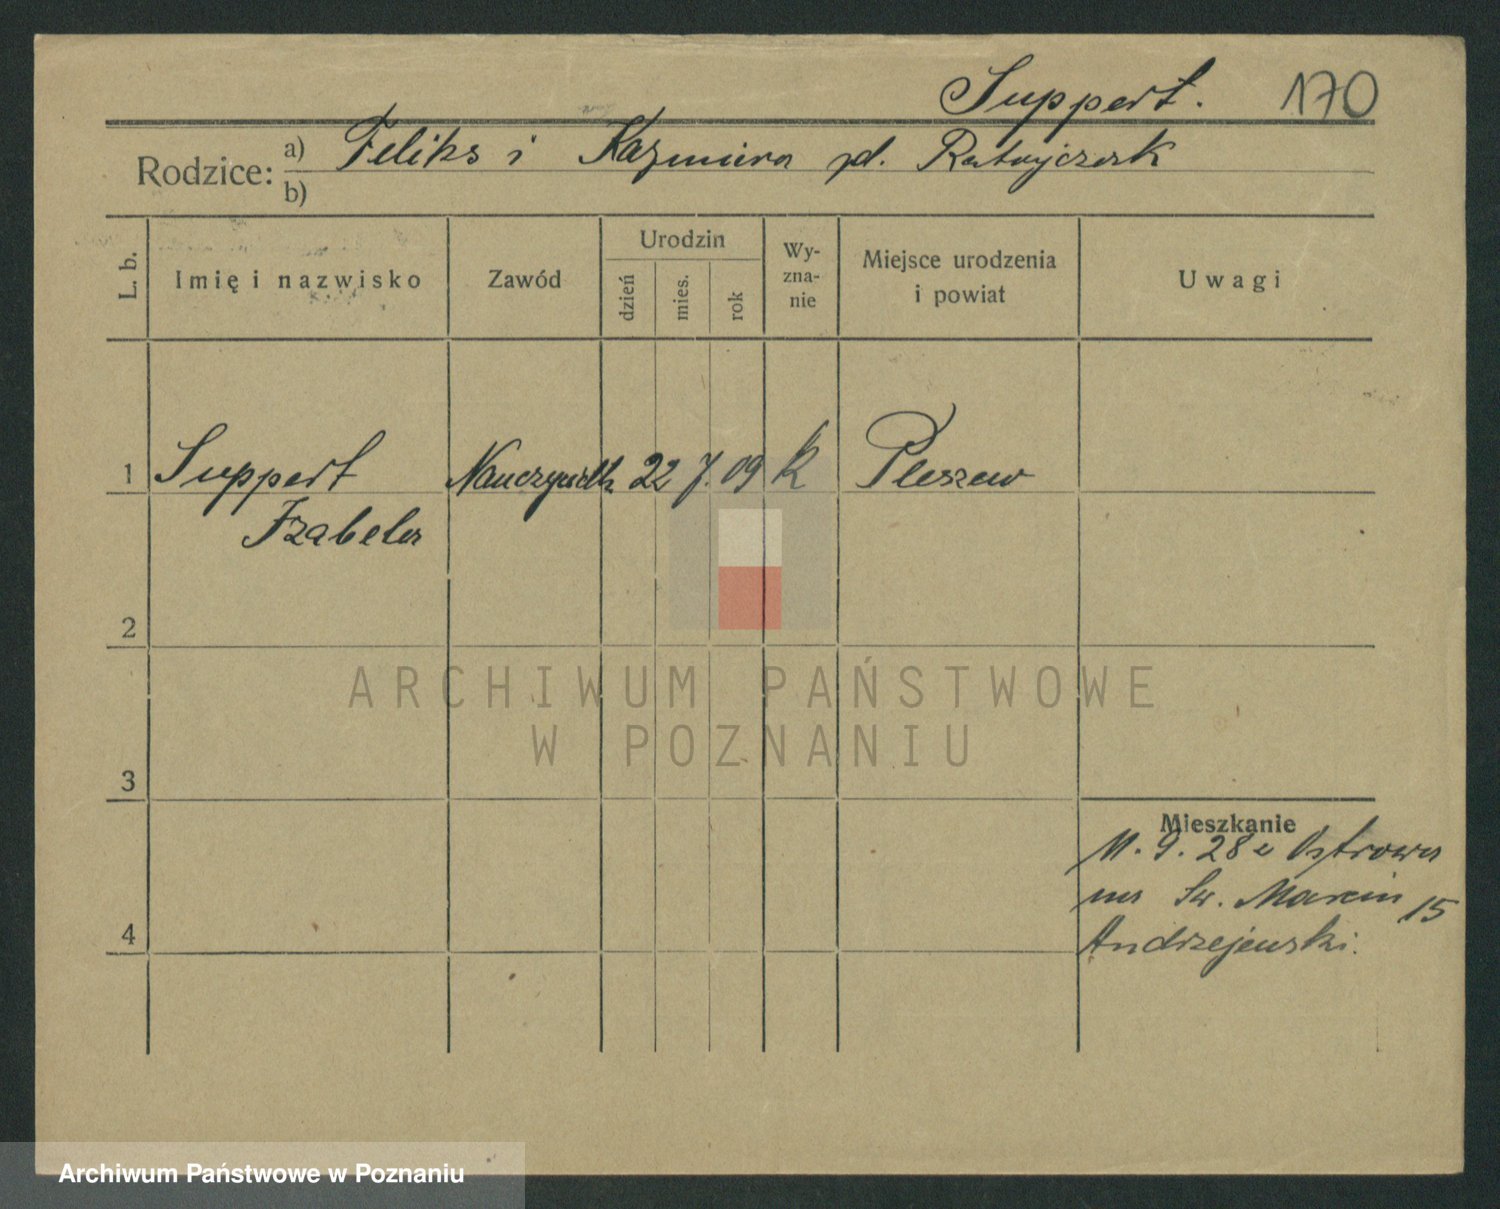 Suppert. 170
Rodzice: a) Feliks i Kazmiera zd. Ratajczak
b)
L. b.
Imię i nazwisko
Zawód
Urodzin
dzień
mies.
rok
Wy-
zna-
nie
Miejsce urodzenia
i powiat
Uwagi
1 Suppert Nauczycielk 22 7. 09 K Pleszew
Izabela
2
ARCHIWUM PAŃSTWOWE
W POZNANIU
3
Mieszkanie
11. 9. 28 z Ostrowa
na Św. Marcin 15
4 Andrzejewski.
Archiwum Państwowe w Poznaniu